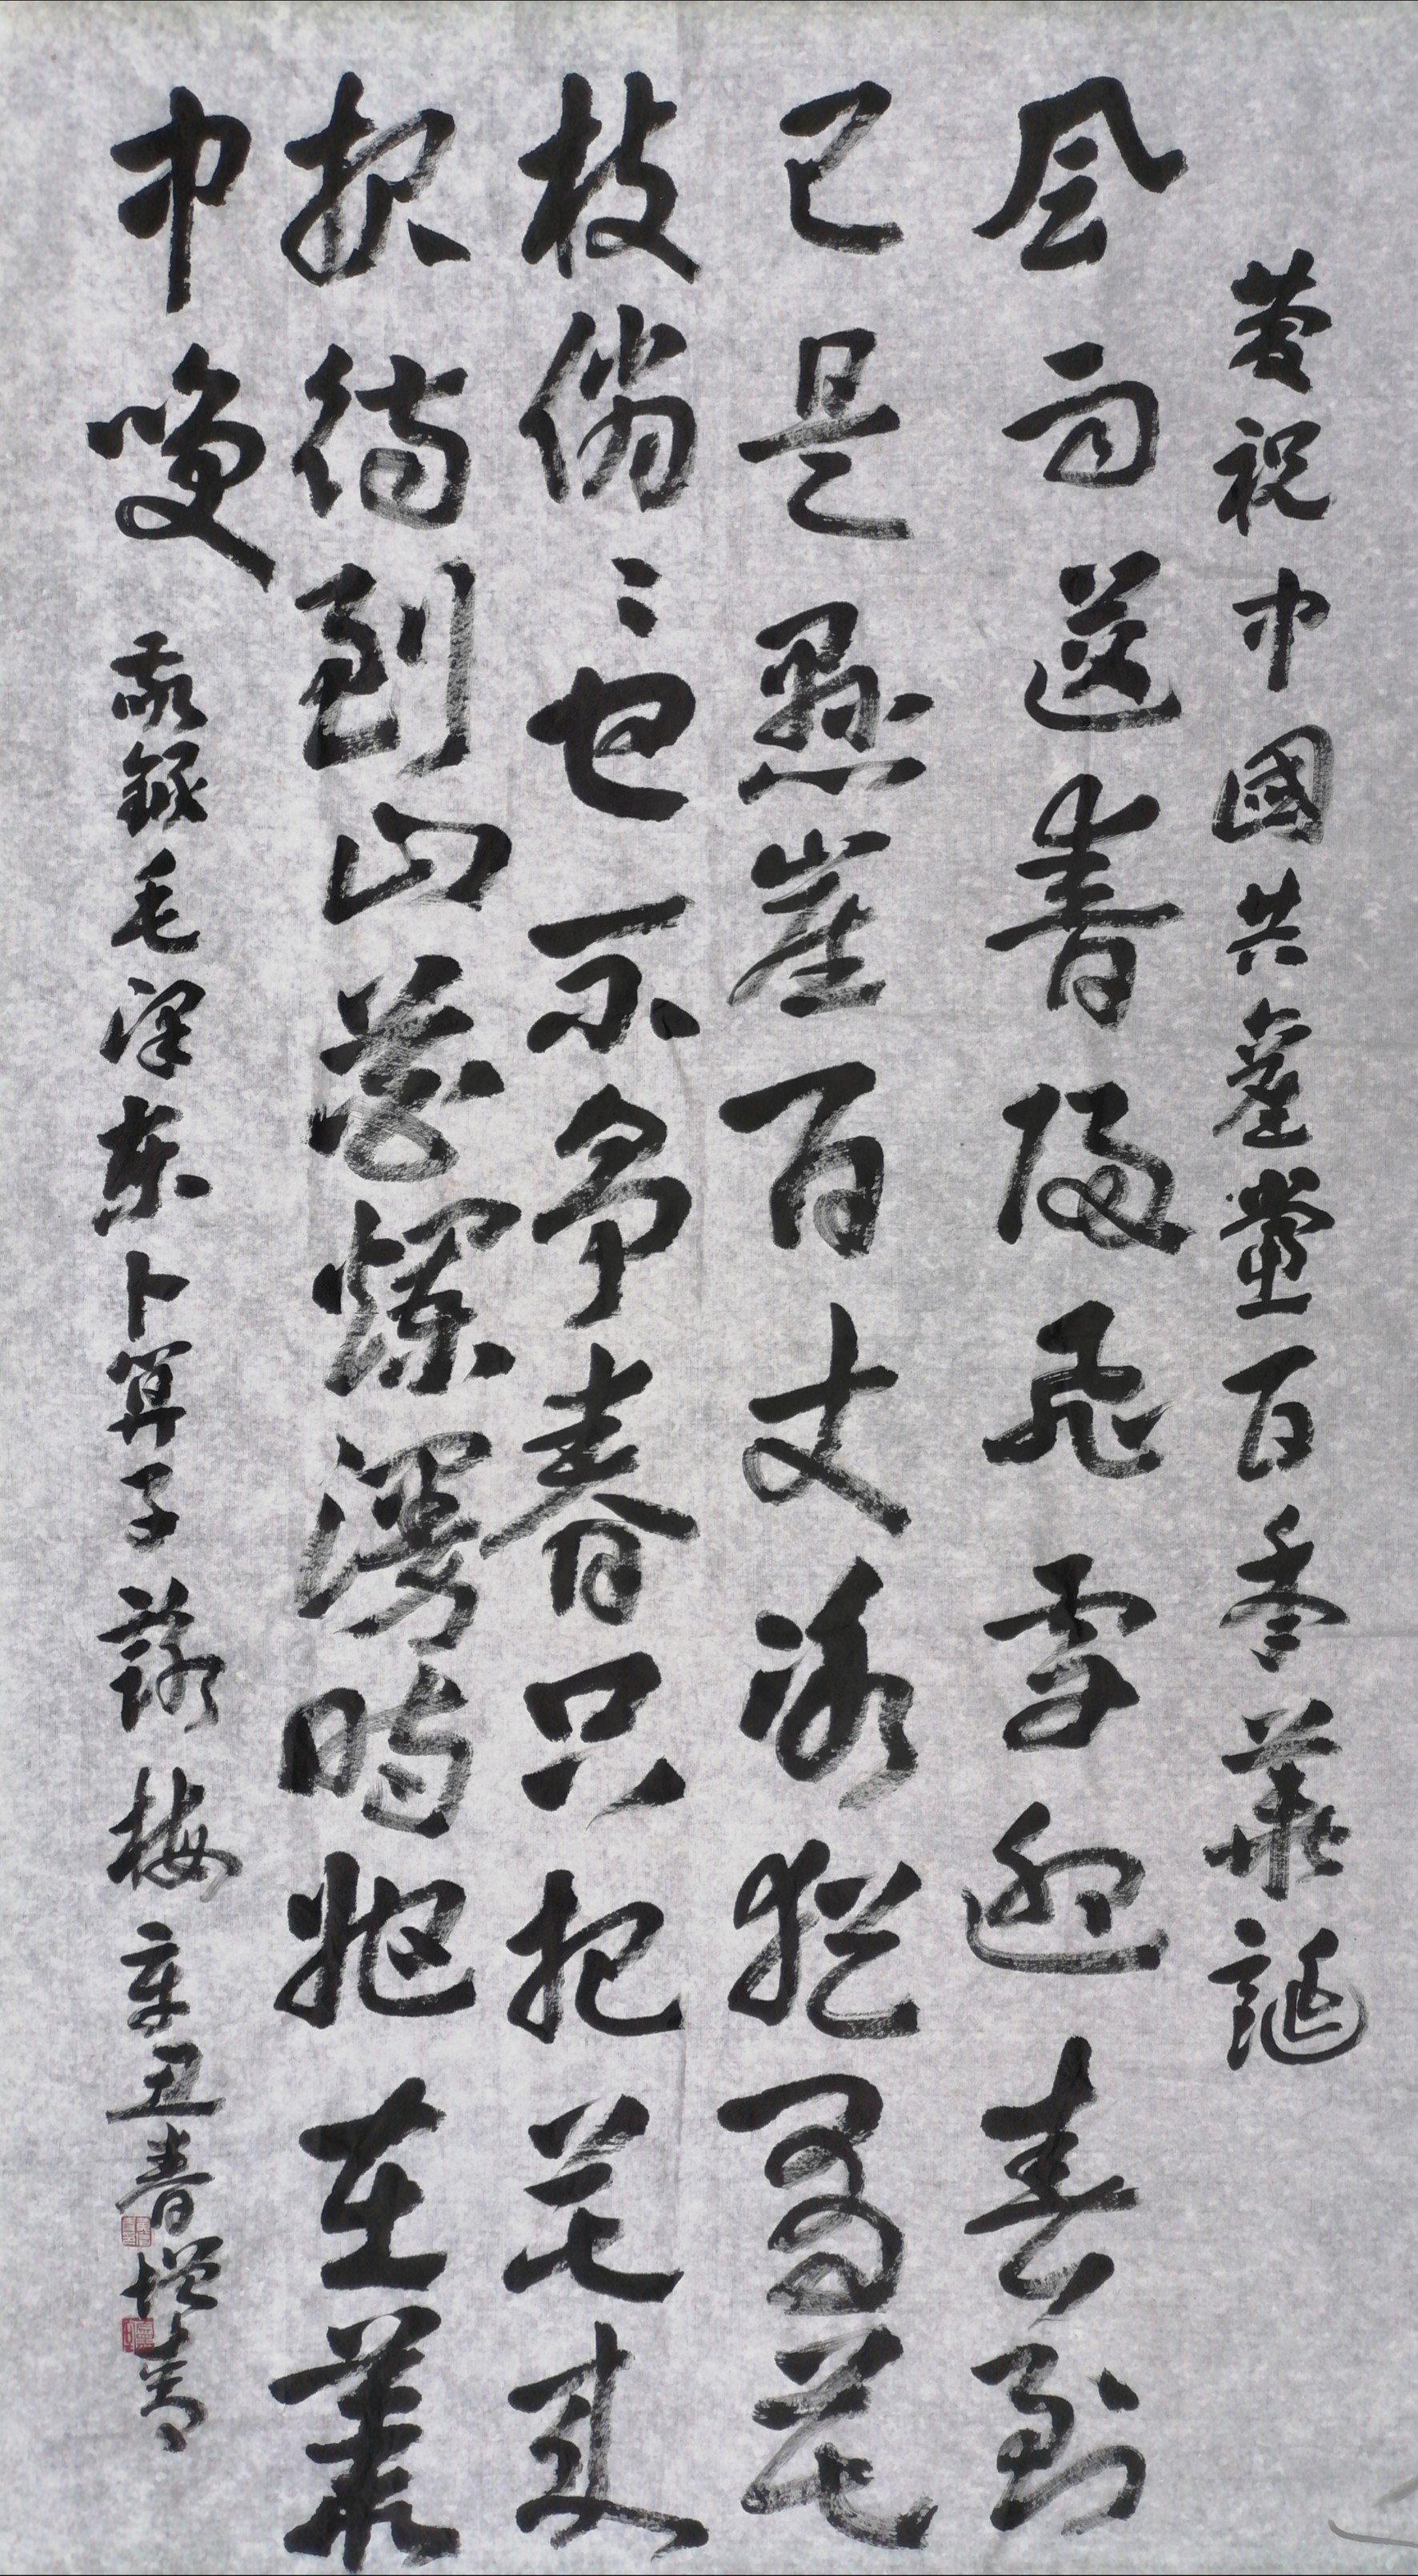 慶祝中國共產黨百年華誕
風雨送春歸飛雪迎春到
已是懸崖百丈冰猶有花
枝俏〻也不爭春只把花來
報待到山花爛漫時她在叢
中笑 敬錄毛澤東卜算子詠梅 辛丑春增青